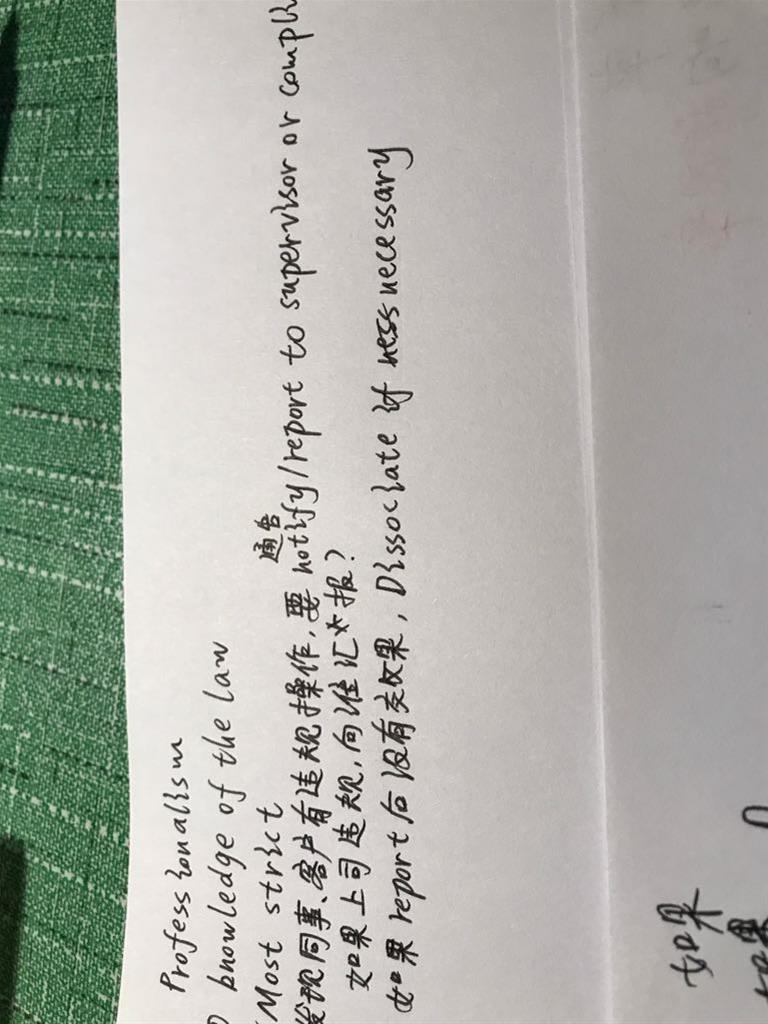 Professionalism
knowledge of the law
Most strict
发现同事、客户有违规操作,要通告notify/report to supervisor or compli
如果上司违规,向谁汇报?
如果report后没有效果,Dissociate if necessary
如果